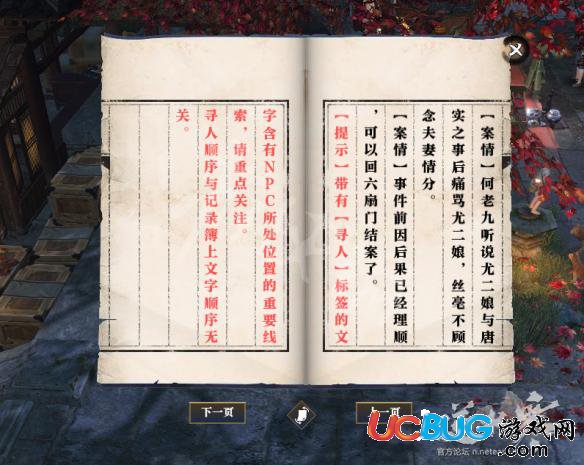 【案情】何老九听说尤二娘与唐
实之事后痛骂尤二娘，丝毫不顾
念夫妻情分。
【案情】事件前因后果已经理顺
，可以回六扇门结案了。
【提示】带有【寻人】标签的文
字含有NPC所处位置的重要线
索，请重点关注。
寻人顺序与记录簿上文字顺序无
关。
下一页
上一页
官方论坛 n.nete
UCBUG游戏网
.com